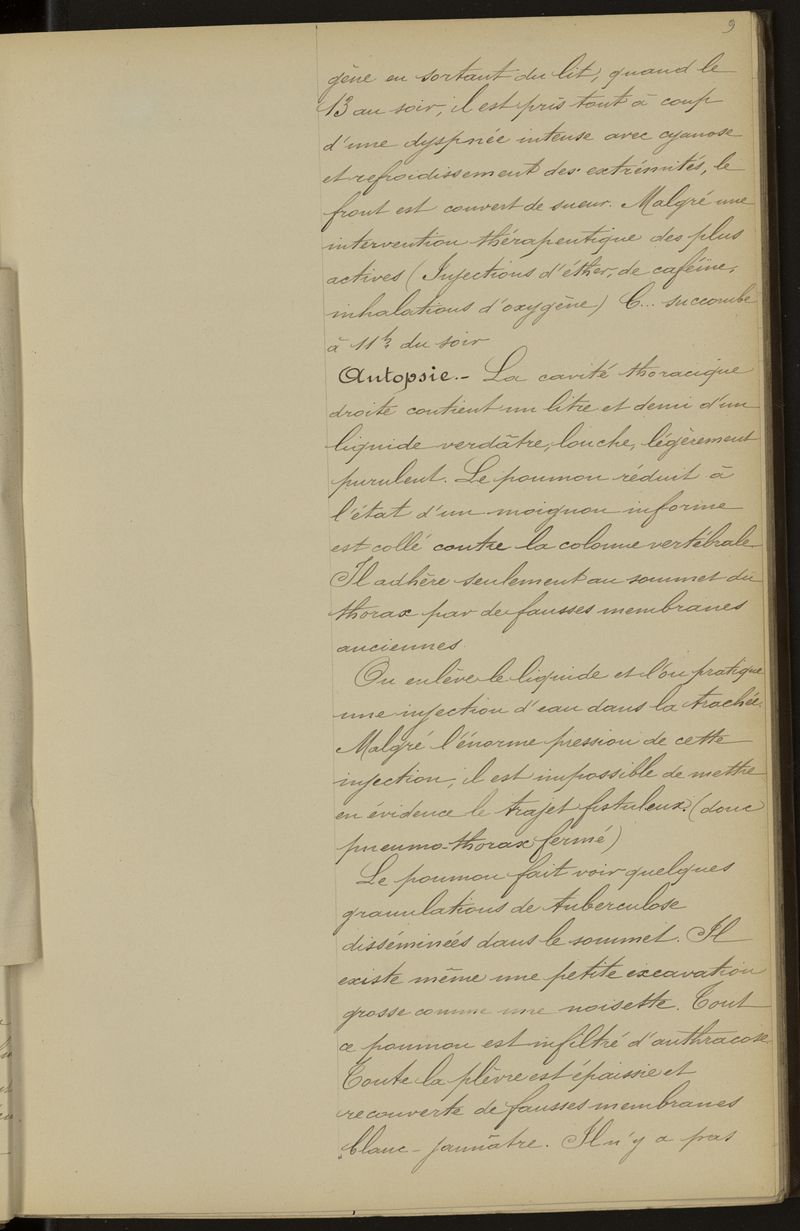 9
gêne en sortant du lit, quand le
13 au soir, il est pris tout à coup
d'une dyspnée intense avec cyanose
et refroidissement des extrémités, le
front est couvert de sueur. Malgré une
intervention thérapeutique des plus
actives (Injections d'éther, de caféine,
inhalations d'oxygène) C... succombe
à 11h du soir
Autopsie.- La cavité thoracique
droite contient un litre et demi d'un
liquide verdâtre, louche, légèrement
purulent. Le poumon réduit à
l'état d'un moignon informe
est collé contre la colonne vertébrale.
Il adhère seulement au sommet du
thorax par de fausses membranes
anciennes.
On enlève le liquide et l'on pratique
une injection d'eau dans la trachée.
Malgré l'énorme pression de cette
injection, il est impossible de mettre
en évidence le trajet fistuleux. (donc
pneumo-thorax fermé)
Le poumon fait voir quelques
granulations de tuberculose
disséminées dans le sommet. Il
existe même une petite excavation
grosse comme une noisette. Tout
ce poumon est infiltré d'anthracose.
Toute la plèvre est épaissie et
recouverte de fausses membranes
blanc-jaunâtre. Il n'y a pas